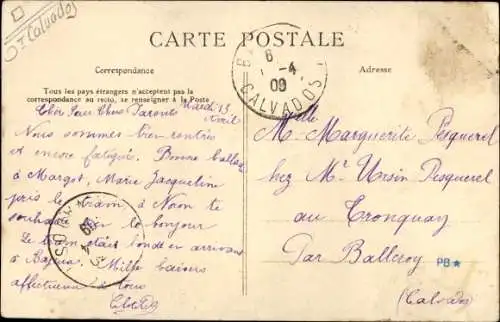 Calvados
CARTE POSTALE
Correspondance
Adresse
Tous les pays étrangers n'acceptent pas la
correspondance au recto, se renseigner à la Poste
6
-4
09
CALVADOS
Mardi 13
Avril
Chers Parents
Nous sommes bien rentrés
et encore fatigué. Bonne
à Margot, Marie Jacqueline
pris le tram à
souhaite bien le bonjour
Le tram était en arrivant
à Bayeux. Mille baisers
affectueux à tous
Melle
Marguerite Pesquerel
chez Mr Ursin Pesquerel
au Tronquay
Par Balleroy
(Calvados)
PB★
09